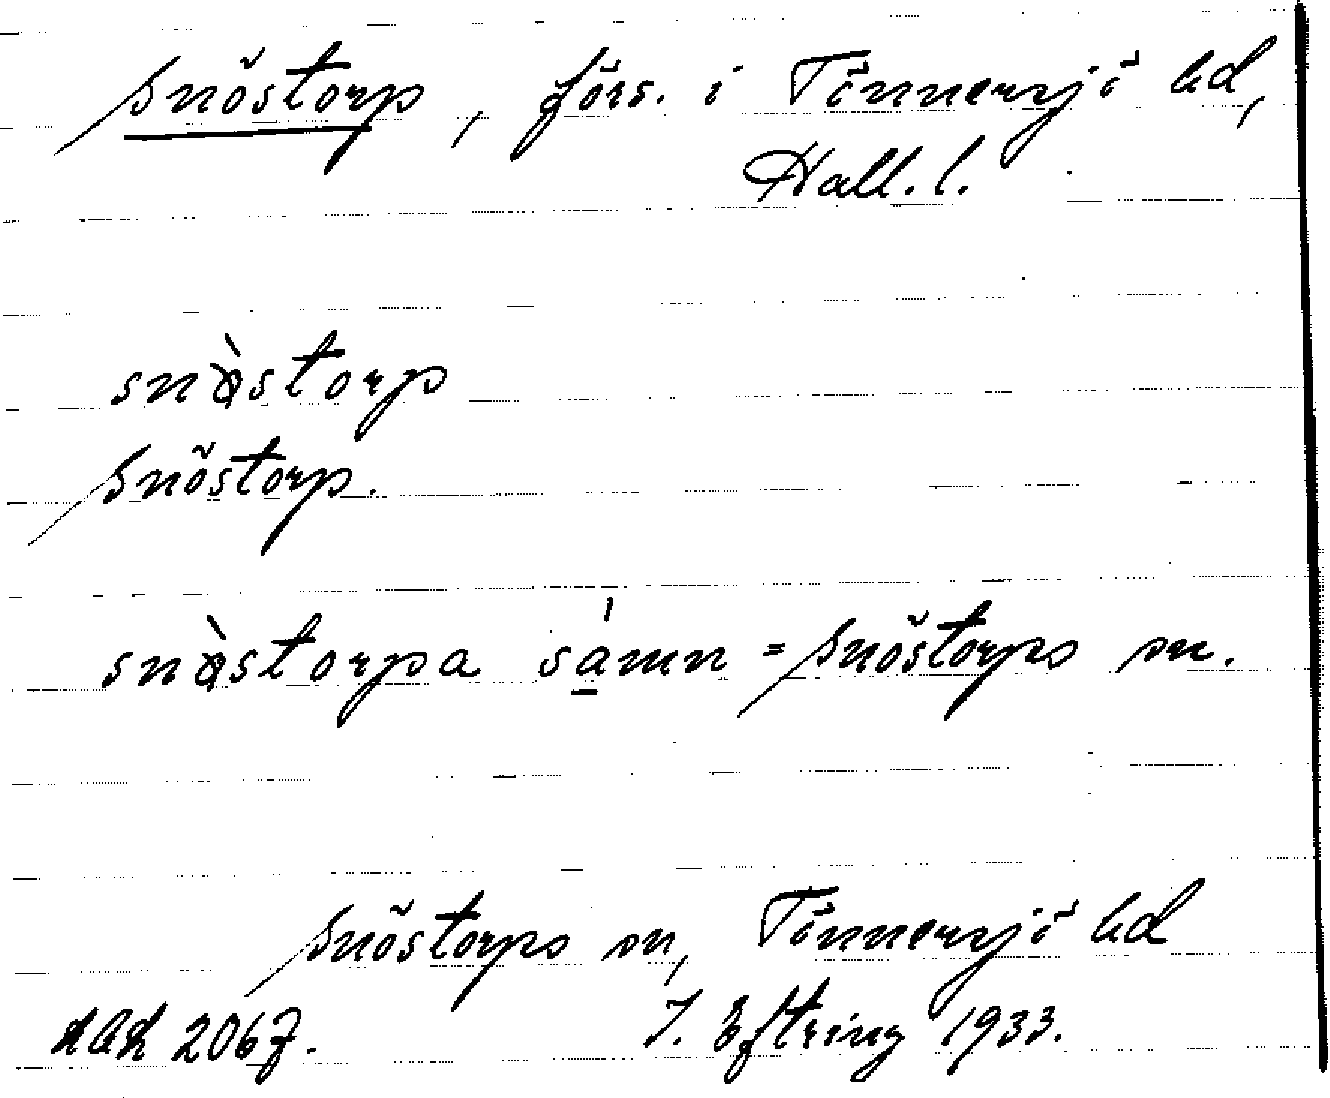 Snöstorp, förs. i Tönnersjö hd,
Hall. l.
snø̀storp
Snöstorp.
snø̀storpa sámn = Snöstorps sn.
Snöstorps sn, Tönnersjö hd
2067. J. Eftring 1933.